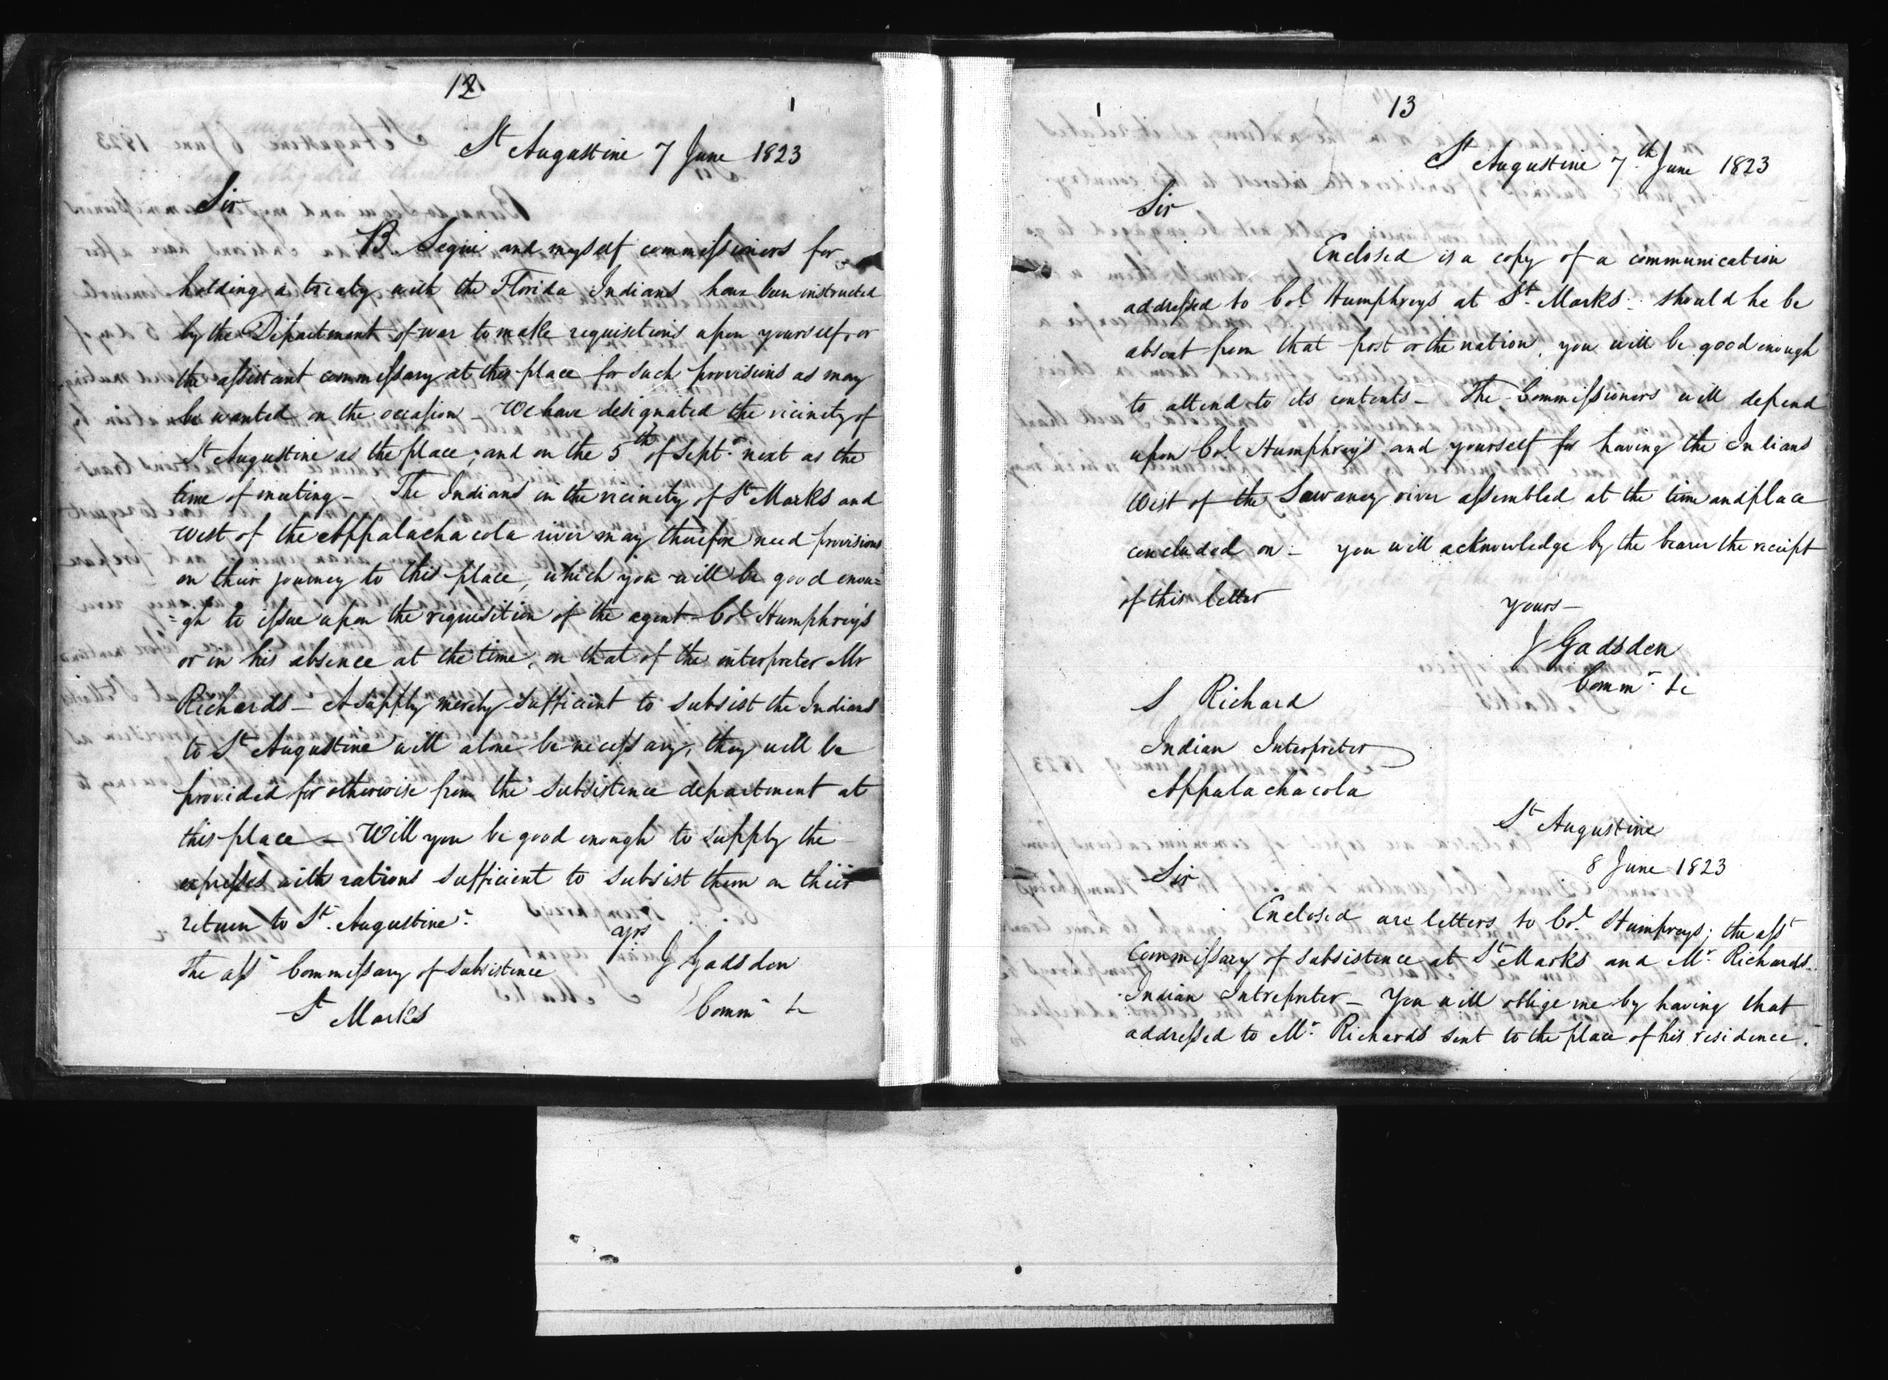 12
St Augustine 7 June 1823
Sir
B. Segui and myself commissioners for
holding a treaty with the Florida Indians have been instructed
by the Department of war to make requisitions upon yourself, or
the assistant commissary at this place for such provisions as may
be wanted on the occasion - We have designated the vicinity of
St Augustine as the place, and on the 5th of Sept. next as the
time of meeting - The Indians in the vicinity of St Marks and
west of the Appalachacola river may therefore need provisions
on their journey to this place, which you will be good enou=
=gh to issue upon the requisition of the agent Col Humphreys
or in his absence at the time, on that of the interpreter Mr
Richards - A supply merely sufficient to subsist the Indians
to St Augustine will alone be necessary, they will be
provided for otherwise from the subsistence department at
this place - Will you be good enough to supply the
expresses with rations sufficient to subsist them on their
return to St. Augustine.
yrs
The asst Commissary of Subsistence
J Gadsden
St Marks
Comm &c
13
St Augustine 7th June 1823
Sir
Enclosed is a copy of a communication
addressed to Col Humphreys at St. Marks. should he be
absent from that post or the nation, you will be good enough
to attend to its contents - The Commissioners will depend
upon Col Humphreys and yourself for having the Indians
West of the Sawaney river assembled at the time and place
concluded on - you will acknowledge by the bearer the receipt
of this letter
yours -
J Gadsden
Comm. &c
S Richard
Indian Interpreter
Appalachacola
St Augustine
8 June 1823
Sir
Enclosed are letters to Col. Humpreys; the asst
Commissary of subsistence at St Marks and Mr. Richards.
Indian Intrepreter - You will oblige me by having that
addressed to Mr. Richards sent to the place of his residence.